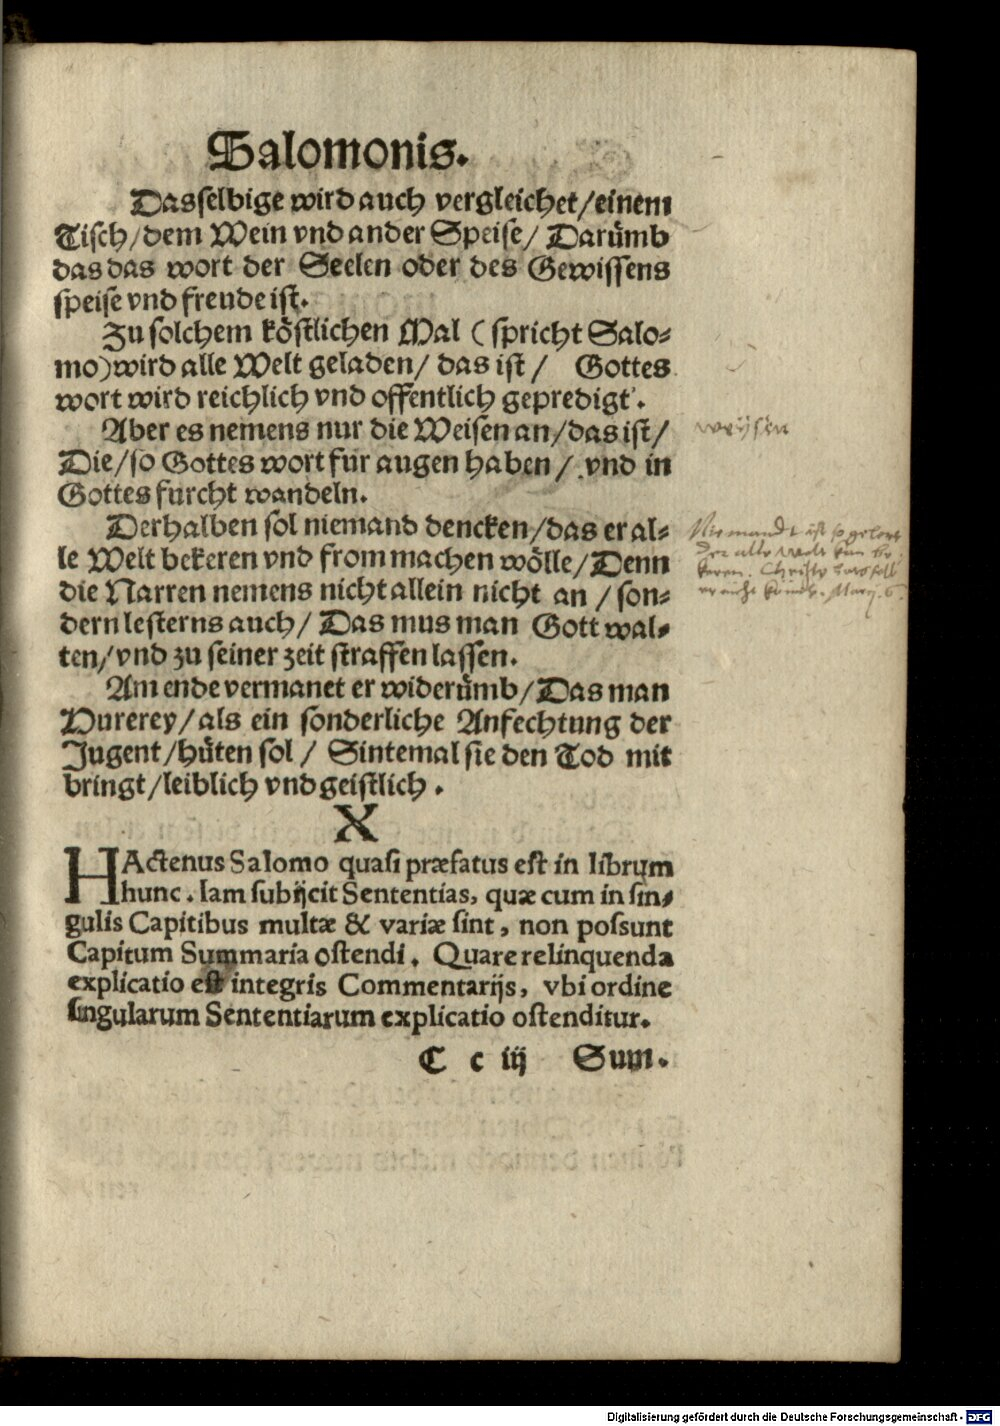 Salomonis.
Dasselbige wird auch vergleichet/einem
Tisch/dem Wein vnd ander Speise/ Darümb
das das wort der Seelen oder des Gewissens
speise vnd freude ist.
Zu solchem köstlichen Mal (spricht Salo-
mo) wird alle Welt geladen/ das ist/ Gottes
wort wird reichlich vnd offentlich gepredigt.
Aber es nemens nur die Weisen an/das ist/
weÿsen
Die/so Gottes wort fur augen haben/ vnd in
Gottes furcht wandeln.
Derhalben sol niemand dencken/das er al-
le Welt bekeren vnd from machen wölle/Denn
die Narren nemens nicht allein nicht an/ son-
dern lesterns auch/ Das mus man Gott wal-
ten/vnd zu seiner zeit straffen lassen.
Niemandt ist so gelert
der alle welt kan be-
keren. Christo
Am ende vermanet er widerümb/Das man
Hurerey/als ein sonderliche Anfechtung der
Jugent/hüten sol/ Sintemal sie den Tod mit
bringt/leiblich vnd geistlich.
X
HActenus Salomo quasi præfatus est in librum
hunc. Iam subijcit Sententias, quæ cum in sin-
gulis Capitibus multæ & variæ sint, non possunt
Capitum Summaria ostendi. Quare relinquenda
explicatio est integris Commentarijs, vbi ordine
singularum Sententiarum explicatio ostenditur.
C c iij Sum.
Digitalisierung gefördert durch die Deutsche Forschungsgemeinschaft - DFG